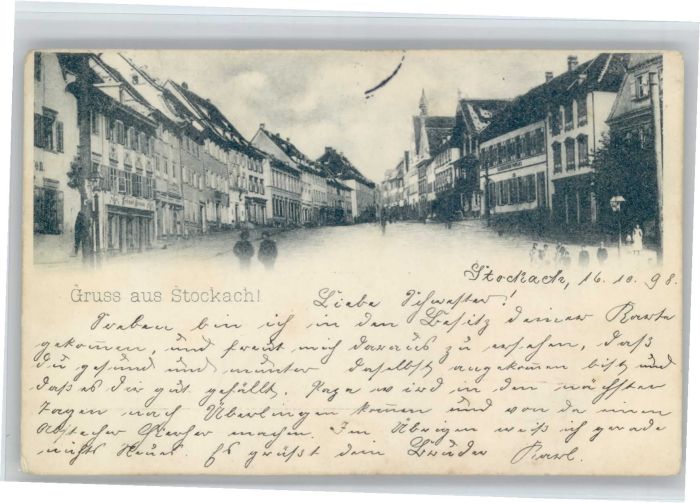 Stockach, 16. 10. 98.
Gruss aus Stockach!
Liebe Schwester!
Soeben bin ich in den Besitz deiner Karte
gekommen, und freut mich daraus zu ersehen, daß
du gesund und munter daselbst angekommen bist und
daß es dir gut gefällt. Papa wird in den nächsten
Tagen nach Überlingen kommen und von da einen
Abstecher hierher machen. Im Übrigen weiß ich gerade
nichts Neues. Es grüßt dein Bruder Karl.